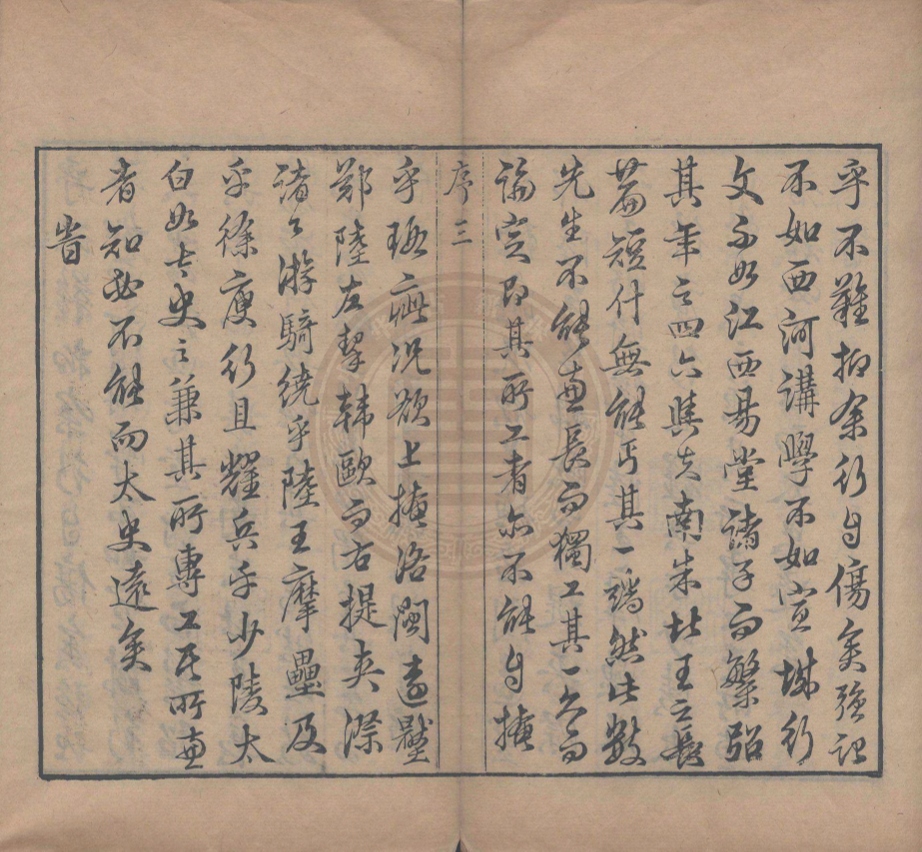 乎不難抑余行自傷矣強記
不如西河講學不如宣城行
文不如江西易堂諸子而繁弱
其年之四六與夫南朱北王之長
篇短什無能丐其一端然此數
先生不能兼長而獨工其一久而
論定即其所工者亦不能自掩
序三
乎瑕疵況欲上掩洛閩遠躐
鄭陸左挈韓歐而右提夾漈
諸公游騎繞乎陸王摩壘及
乎徐庾行且耀兵乎少陵太
白如太史之兼其所專工其所兼
者知必不能而太史遠矣
昔